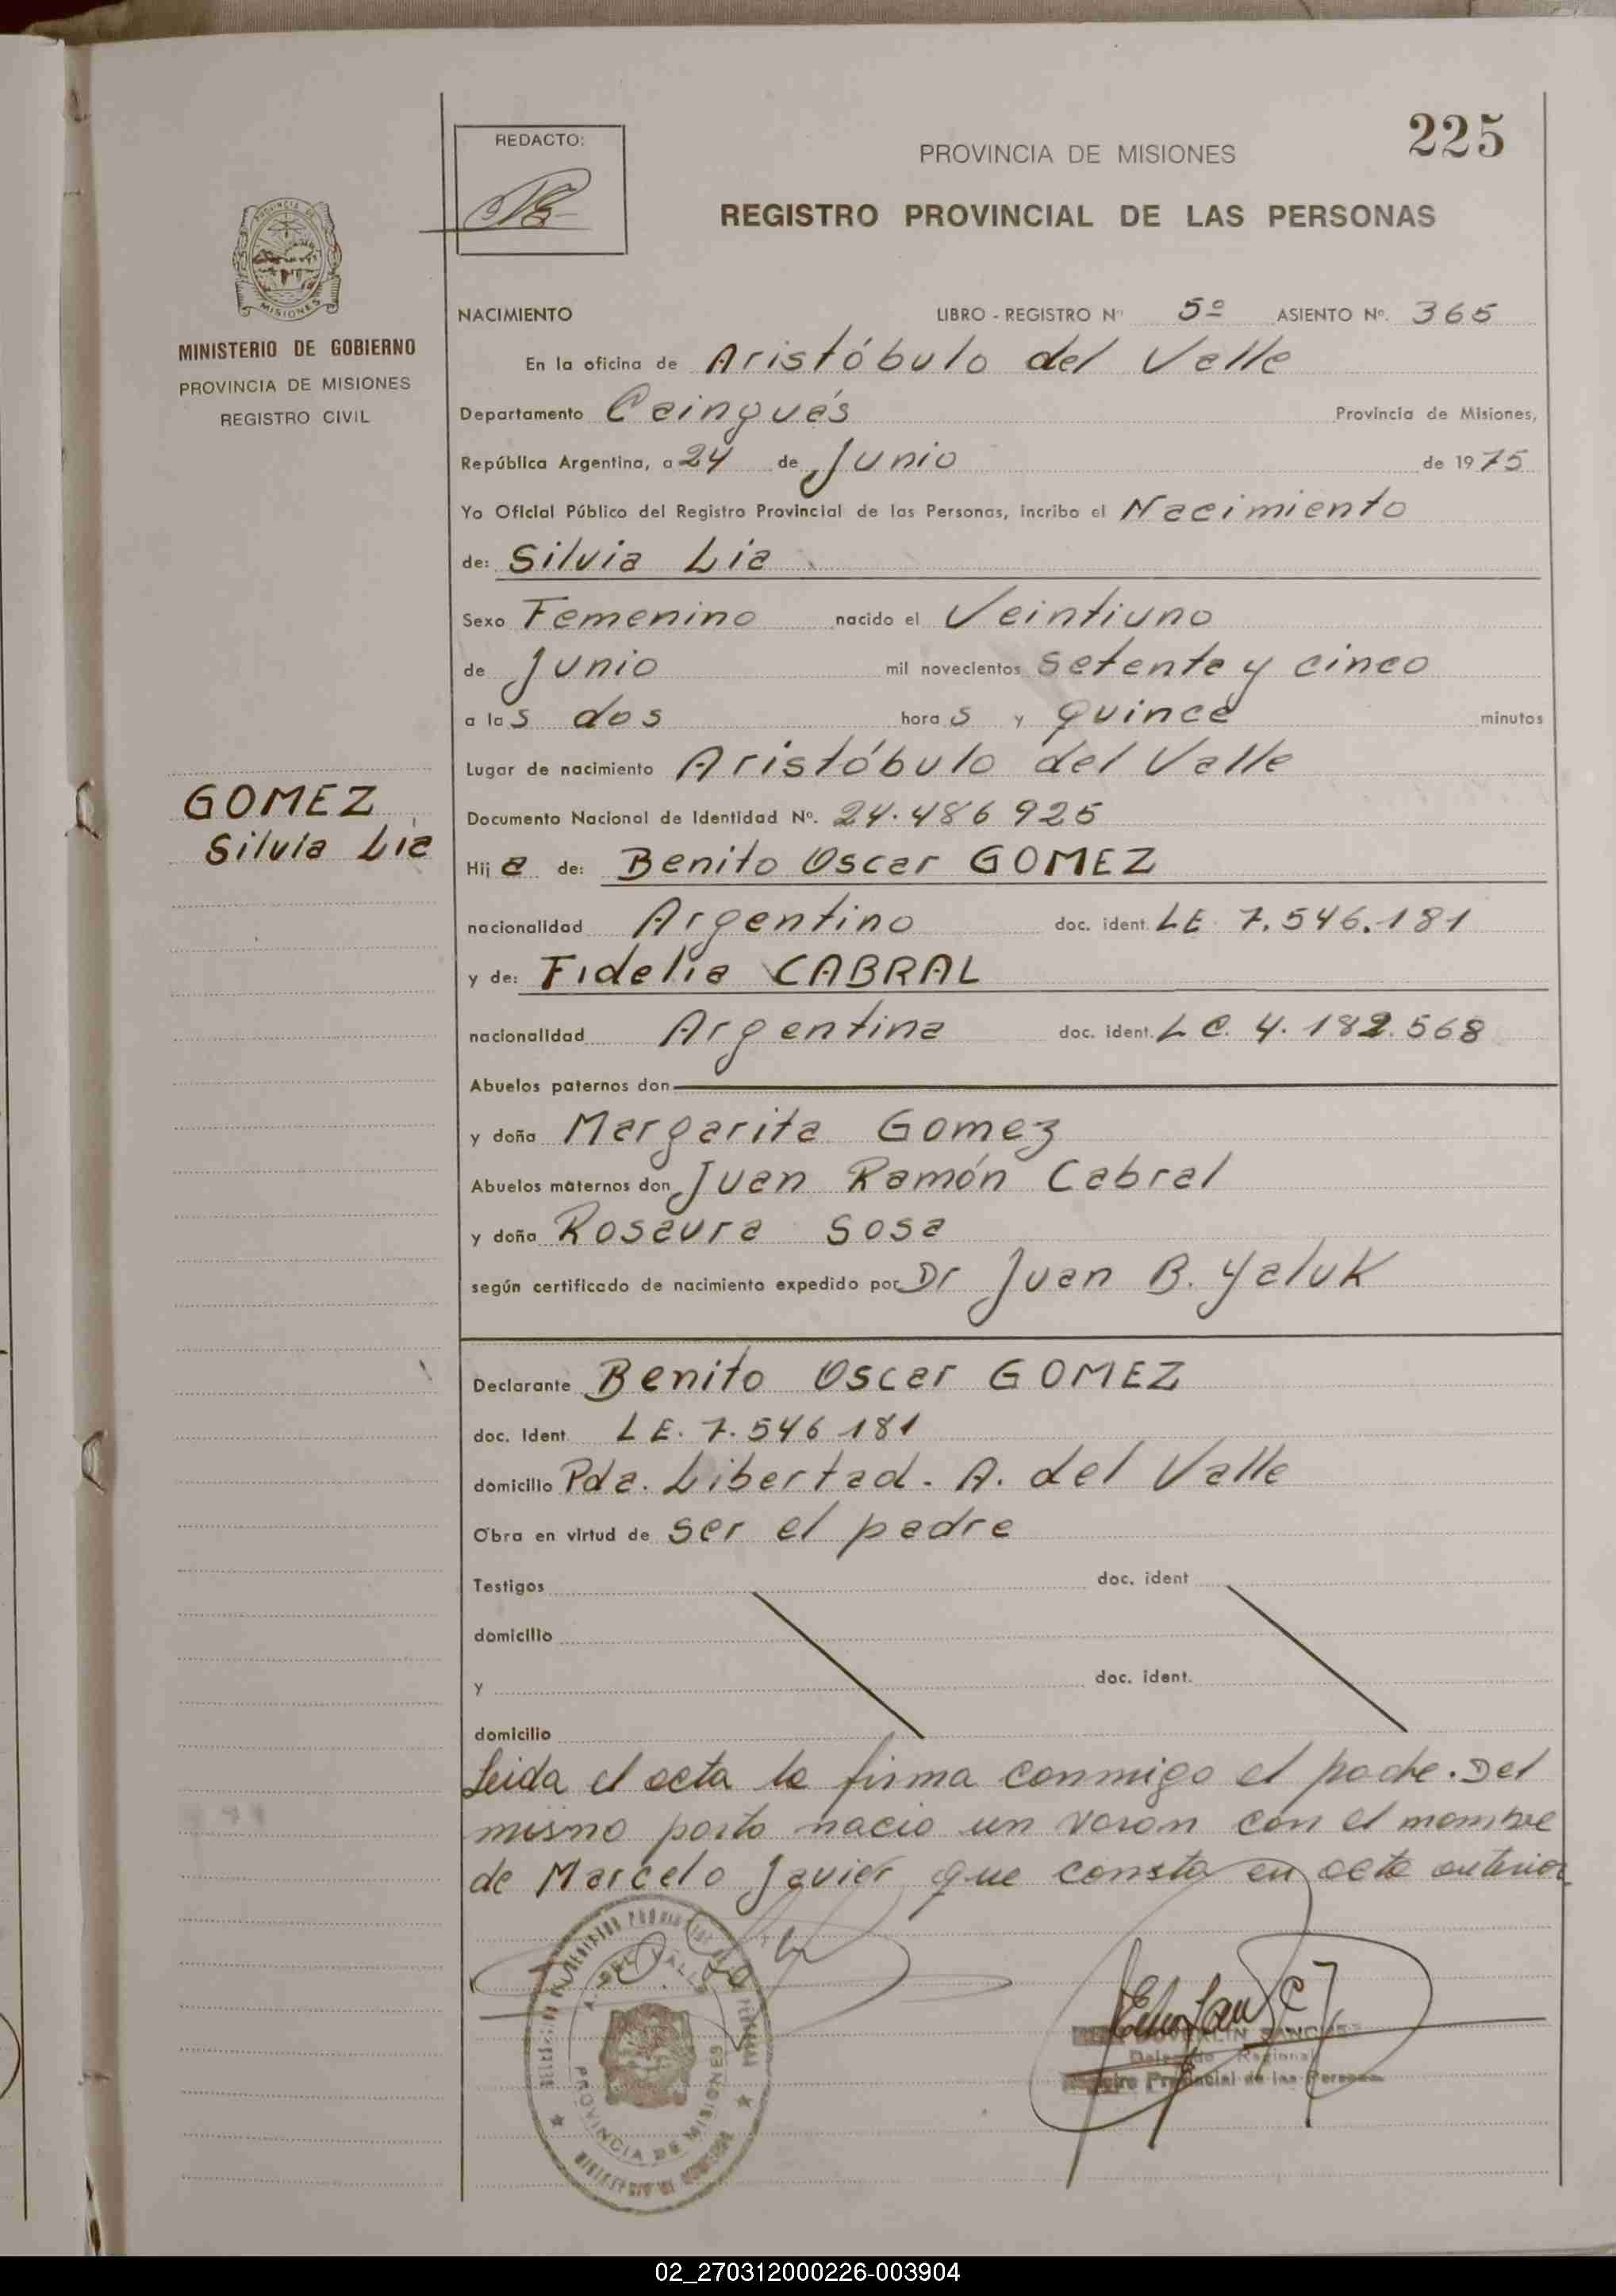 225
REDACTO:
PROVINCIA DE MISIONES
REGISTRO PROVINCIAL DE LAS PERSONAS
MINISTERIO DE GOBIERNO
PROVINCIA DE MISIONES
REGISTRO CIVIL
GOMEZ
Silvia Lia
NACIMIENTO LIBRO - REGISTRO Nº 5º ASIENTO Nº. 365
En la oficina de Aristóbulo del Valle
Departamento Caingués Provincia de Misiones,
República Argentina, a 24 de Junio de 1975
Yo Oficial Público del Registro Provincial de las Personas, incribo el Nacimiento
de: Silvia Lia
Sexo Femenino nacido el Veintiuno
de Junio mil novecientos setenta y cinco
a las dos horas y quince minutos
Lugar de nacimiento Aristóbulo del Valle
Documento Nacional de Identidad Nº. 24.486925
Hija de: Benito Oscar GOMEZ
nacionalidad Argentino doc. ident. LE 7.546.181
y de: Fidelia CABRAL
nacionalidad Argentina doc. ident. L C. 4.182.568
Abuelos paternos don
y doña Margarita Gomez
Abuelos maternos don Juan Ramón Cabral
y doña Rosaura Sosa
según certificado de nacimiento expedido por Dr Juan B. Yaluk
Declarante Benito Oscar GOMEZ
doc. Ident. L E. 7.546 181
domicilio Pda. Libertad. A. del Valle
Obra en virtud de ser el padre
Testigos doc. ident
domicilio
y doc. ident.
domicilio
Leida el acta la firma conmigo el padre. Del
mismo parto nacio un varon con el nombre
de Marcelo Javier que consta en acta anterior
A. DEL VALLE
PROVINCIA DE MISIONES
Delegado Regional
Provincial de las Personas
02_270312000226-003904